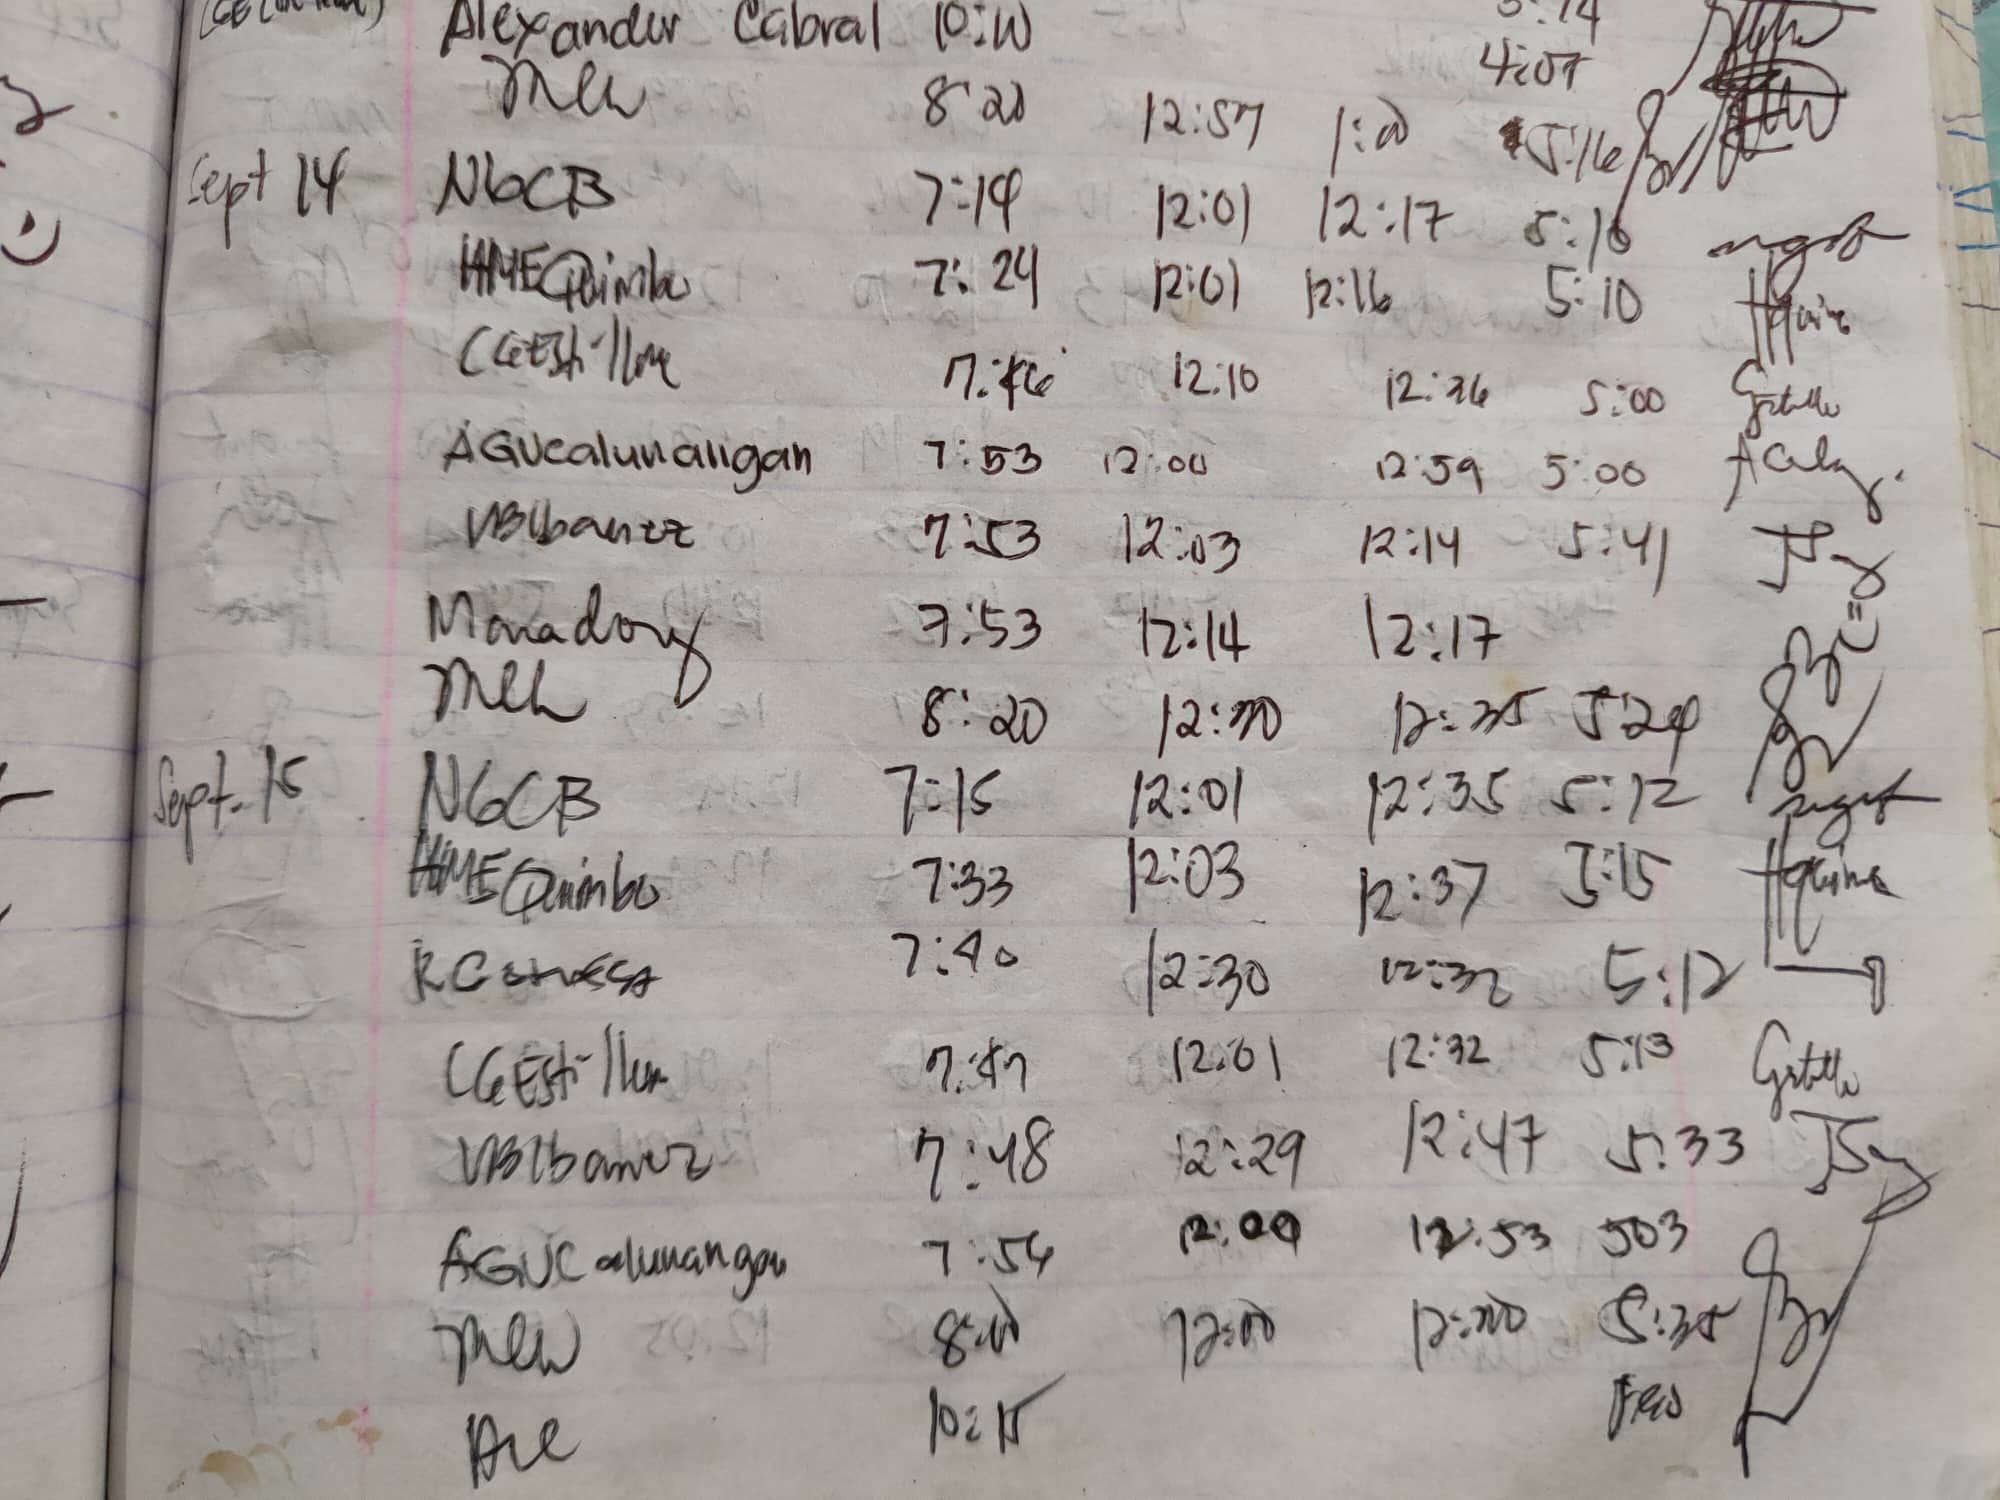 Alexander Cabral 10:10 5:14
4:07
Mlw 8:20 12:57 1:00 5:16
Sept 14 NGCB 7:14 12:01 12:17 5:16
HMEQuimbo 7:24 12:01 12:16 5:10
CGEstillore 7:46 12:10 12:36 5:00
AGUCalunangan 7:53 12:00 12:59 5:00
VBIbanez 7:53 12:03 12:14 5:41
Monadoxy 7:53 12:14 12:17
8:20 12:30 12:35 5:24
Sept. 15 NGCB 7:15 12:01 12:35 5:12
HMEQuimbo 7:33 12:03 12:37 5:15
RC 7:40 12:30 12:32 5:12
CGEstillore 7:47 12:01 12:32 5:13
VBIbanez 7:48 12:29 12:47 5:33
AGUCalunangan 7:54 12:00 12:53 503
Mlw 8:00 12:00 12:30 5:35
10:15